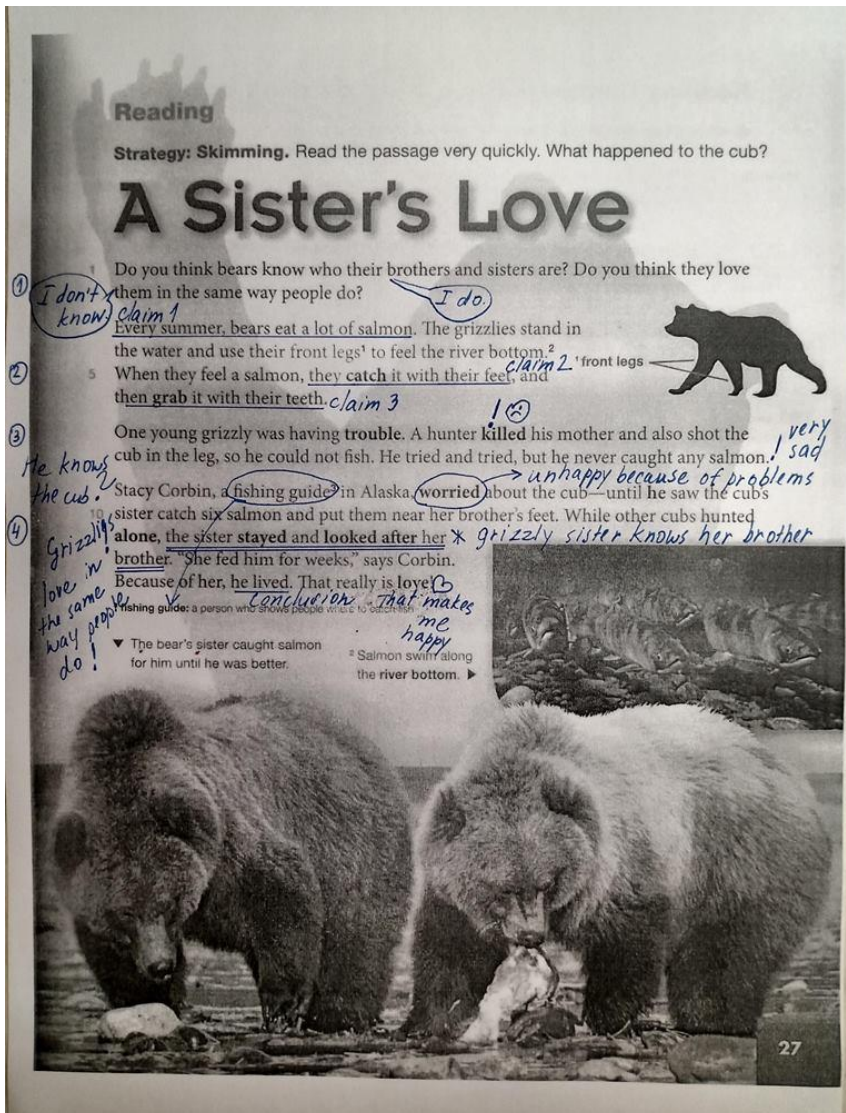 Reading
Strategy: Skimming. Read the passage very quickly. What happened to the cub?
A Sister's Love
1 Do you think bears know who their brothers and sisters are? Do you think they love
① I don't know. them in the same way people do? I do.
claim 1
Every summer, bears eat a lot of salmon. The grizzlies stand in
the water and use their front legs¹ to feel the river bottom.²
claim 2 ¹ front legs
② 5 When they feel a salmon, they catch it with their feet, and
then grab it with their teeth. claim 3
! ☹
③ One young grizzly was having trouble. A hunter killed his mother and also shot the
cub in the leg, so he could not fish. He tried and tried, but he never caught any salmon. ! very sad
He knows the cub?
→ unhappy because of problems
Stacy Corbin, a fishing guide³ in Alaska, worried about the cub—until he saw the cub's
10 sister catch six salmon and put them near her brother's feet. While other cubs hunted
④ alone, the sister stayed and looked after her * grizzly sister knows her brother
brother. "She fed him for weeks," says Corbin.
Because of her, he lived. That really is love!
conclusion That makes me happy
Grizzlies love in the same way people do!
³ fishing guide: a person who shows people where to catch fish
▼ The bear's sister caught salmon
for him until he was better.
² Salmon swim along
the river bottom. ▶
27